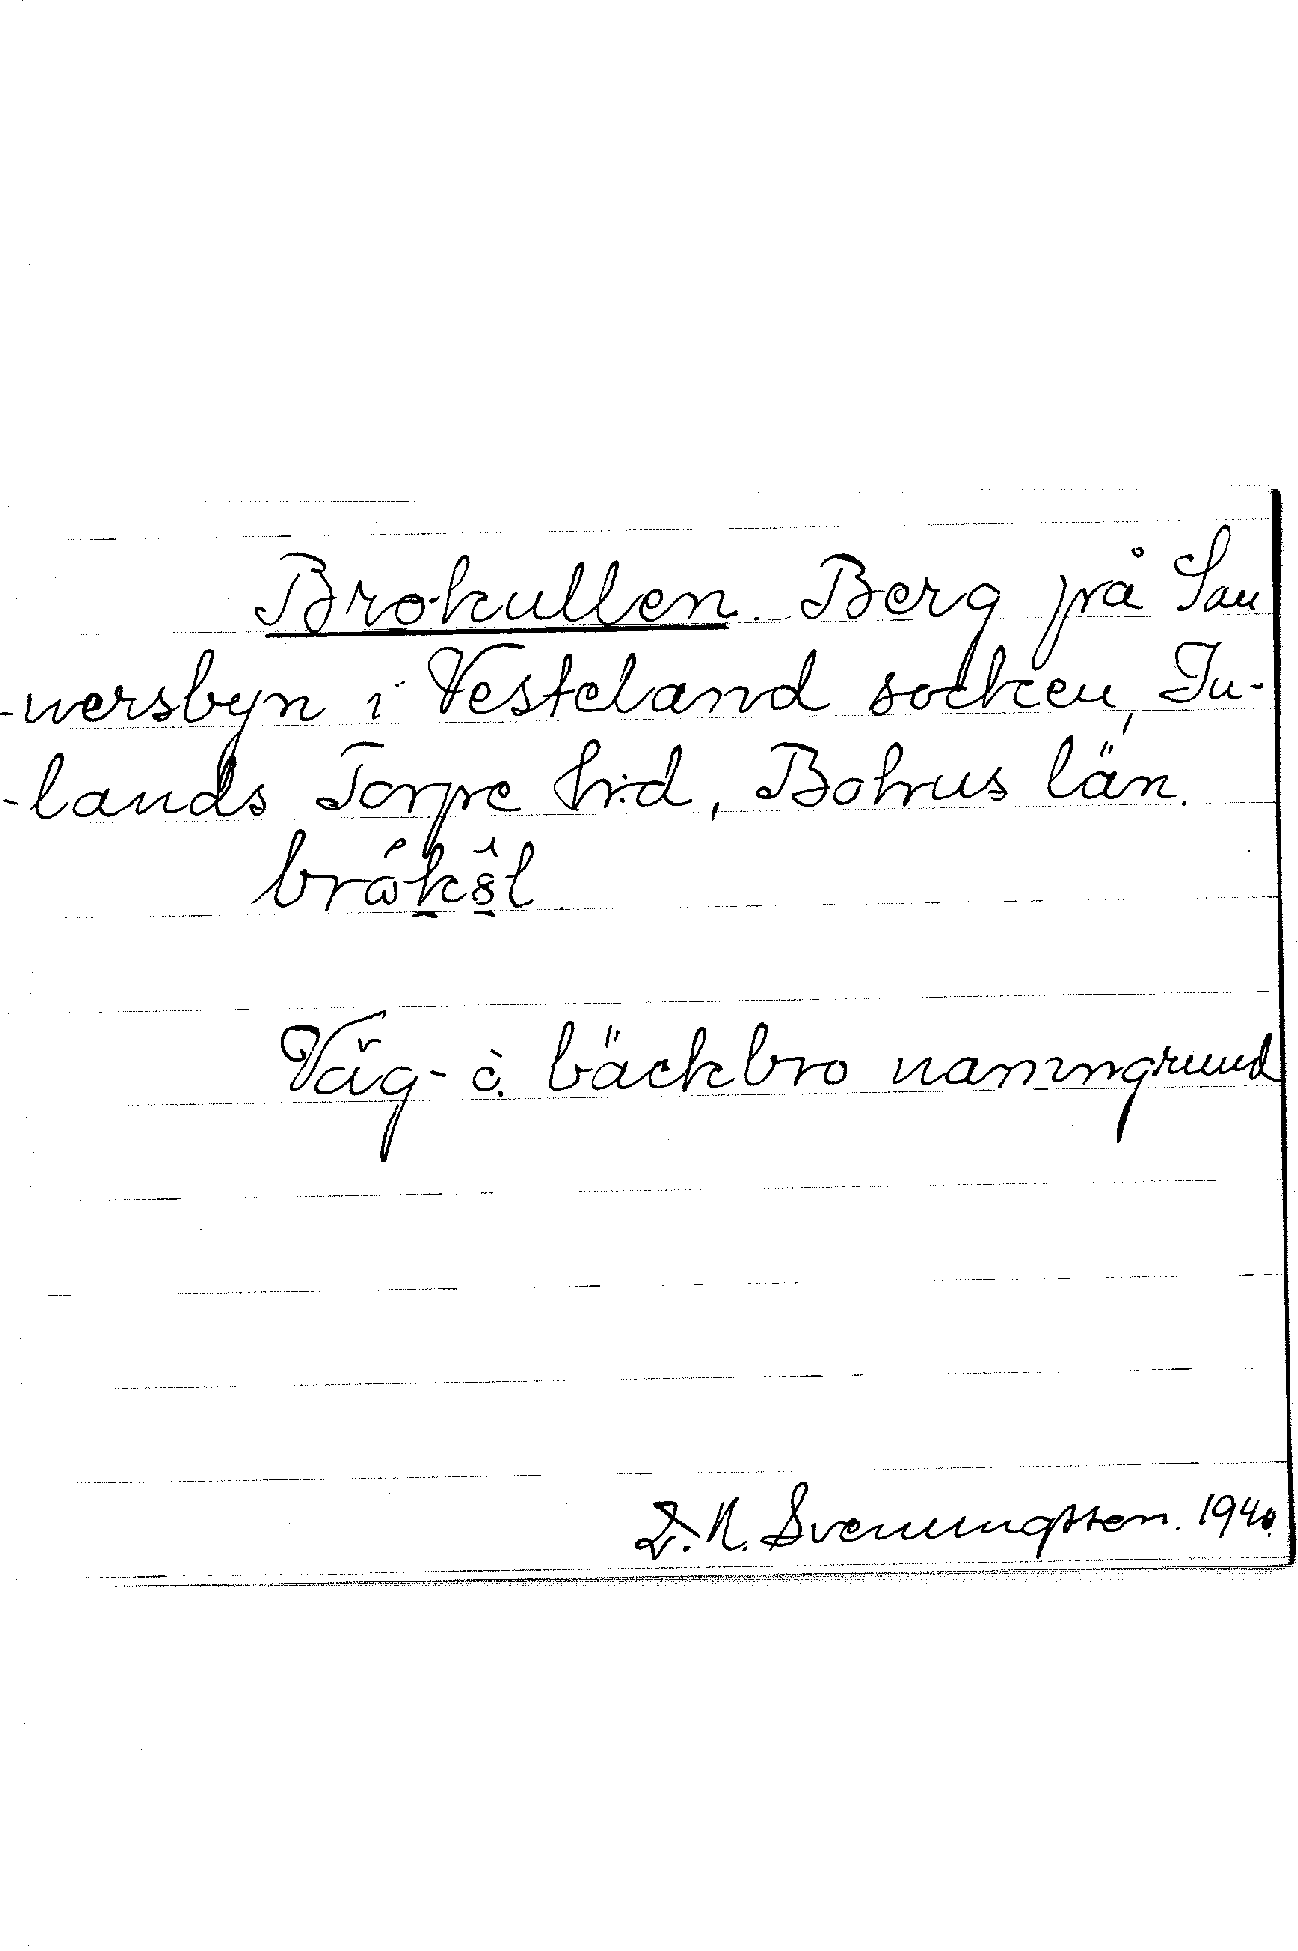 Brokullen. Berg på San
-nersbyn i Vesteland socken, In-
-lands Torpe hrd, Bohus län.
Väg- o. bäckbro namngrund
D. N. Svenningsson. 1940.